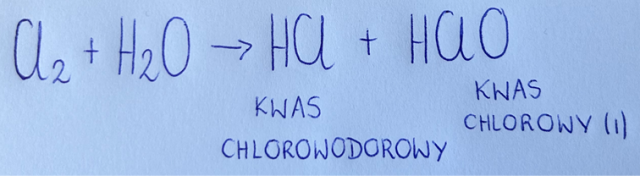 Cl₂ + H₂O → HCl + HClO
KWAS
CHLOROWODOROWY
KWAS
CHLOROWY (I)